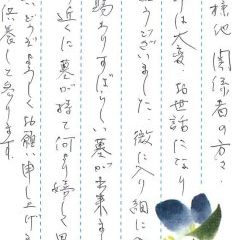 様他 関係者の方々、
りは大変お世話になり
うございました。微に入り細に
賜わりすばらしい墓が出来ま
近くに墓が持て何より嬉しく思
いどうぞよろしくお願い申し上げ
供養して参ります。